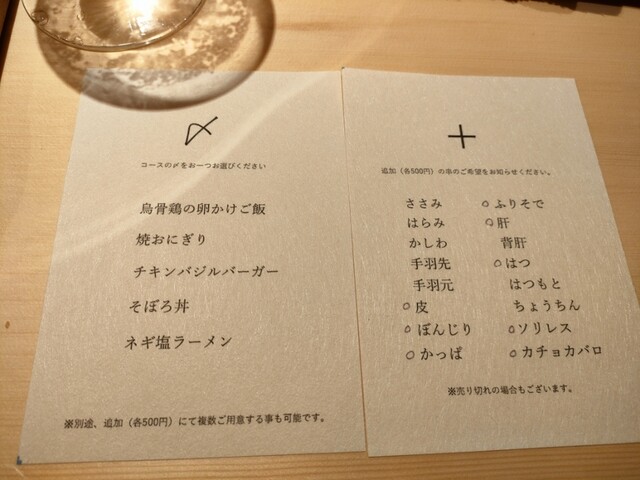 〆
コースの〆をお一つお選びください
烏骨鶏の卵かけご飯
焼おにぎり
チキンバジルバーガー
そぼろ丼
ネギ塩ラーメン
※別途、追加（各500円）にて複数ご用意する事も可能です。
＋
追加（各500円）の串のご希望をお知らせください。
ささみ
はらみ
かしわ
手羽先
手羽元
○皮
○ぼんじり
○かっぱ
○ふりそで
○肝
背肝
○はつ
はつもと
ちょうちん
○ソリレス
○カチョカバロ
※売り切れの場合もございます。